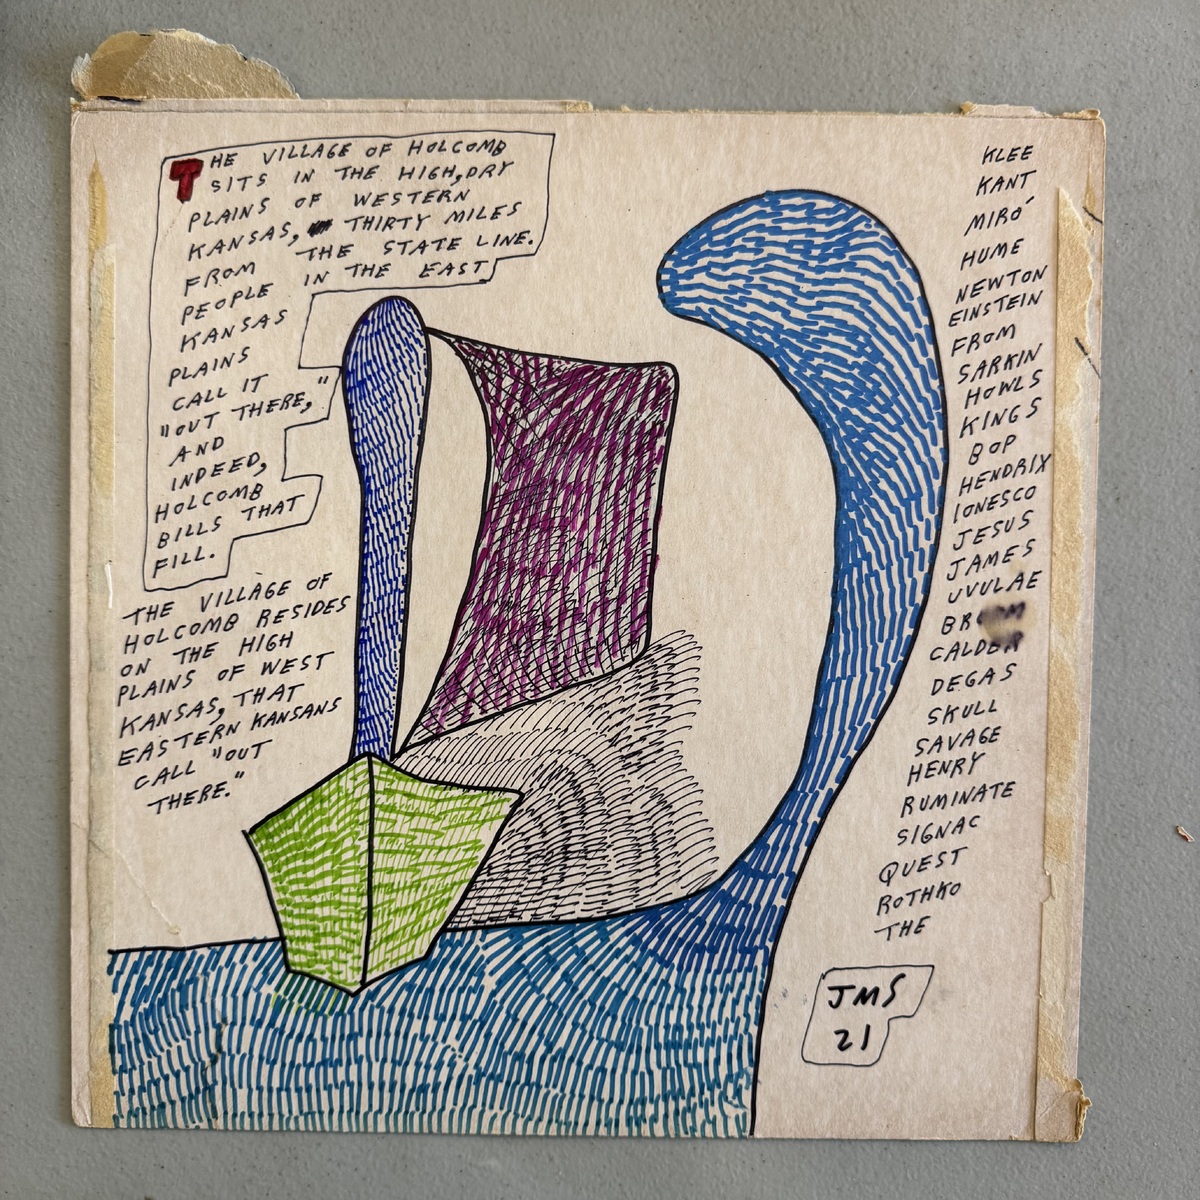 THE VILLAGE OF HOLCOMB
SITS IN THE HIGH, DRY
PLAINS OF WESTERN
KANSAS, THIRTY MILES
FROM THE STATE LINE.
PEOPLE IN THE EAST
KANSAS
PLAINS
CALL IT
"OUT THERE,"
AND
INDEED,
HOLCOMB
BILLS THAT
FILL.
THE VILLAGE OF
HOLCOMB RESIDES
ON THE HIGH
PLAINS OF WEST
KANSAS, THAT
EASTERN KANSANS
CALL "OUT
THERE."
KLEE
KANT
MIRÓ
HUME
NEWTON
EINSTEIN
FROM
SARKIN
HOWLS
KINGS
BOP
HENDRIX
IONESCO
JESUS
JAMES
UVULAE
CALDER
DEGAS
SKULL
SAVAGE
HENRY
RUMINATE
SIGNAC
QUEST
ROTHKO
THE
JMS
21